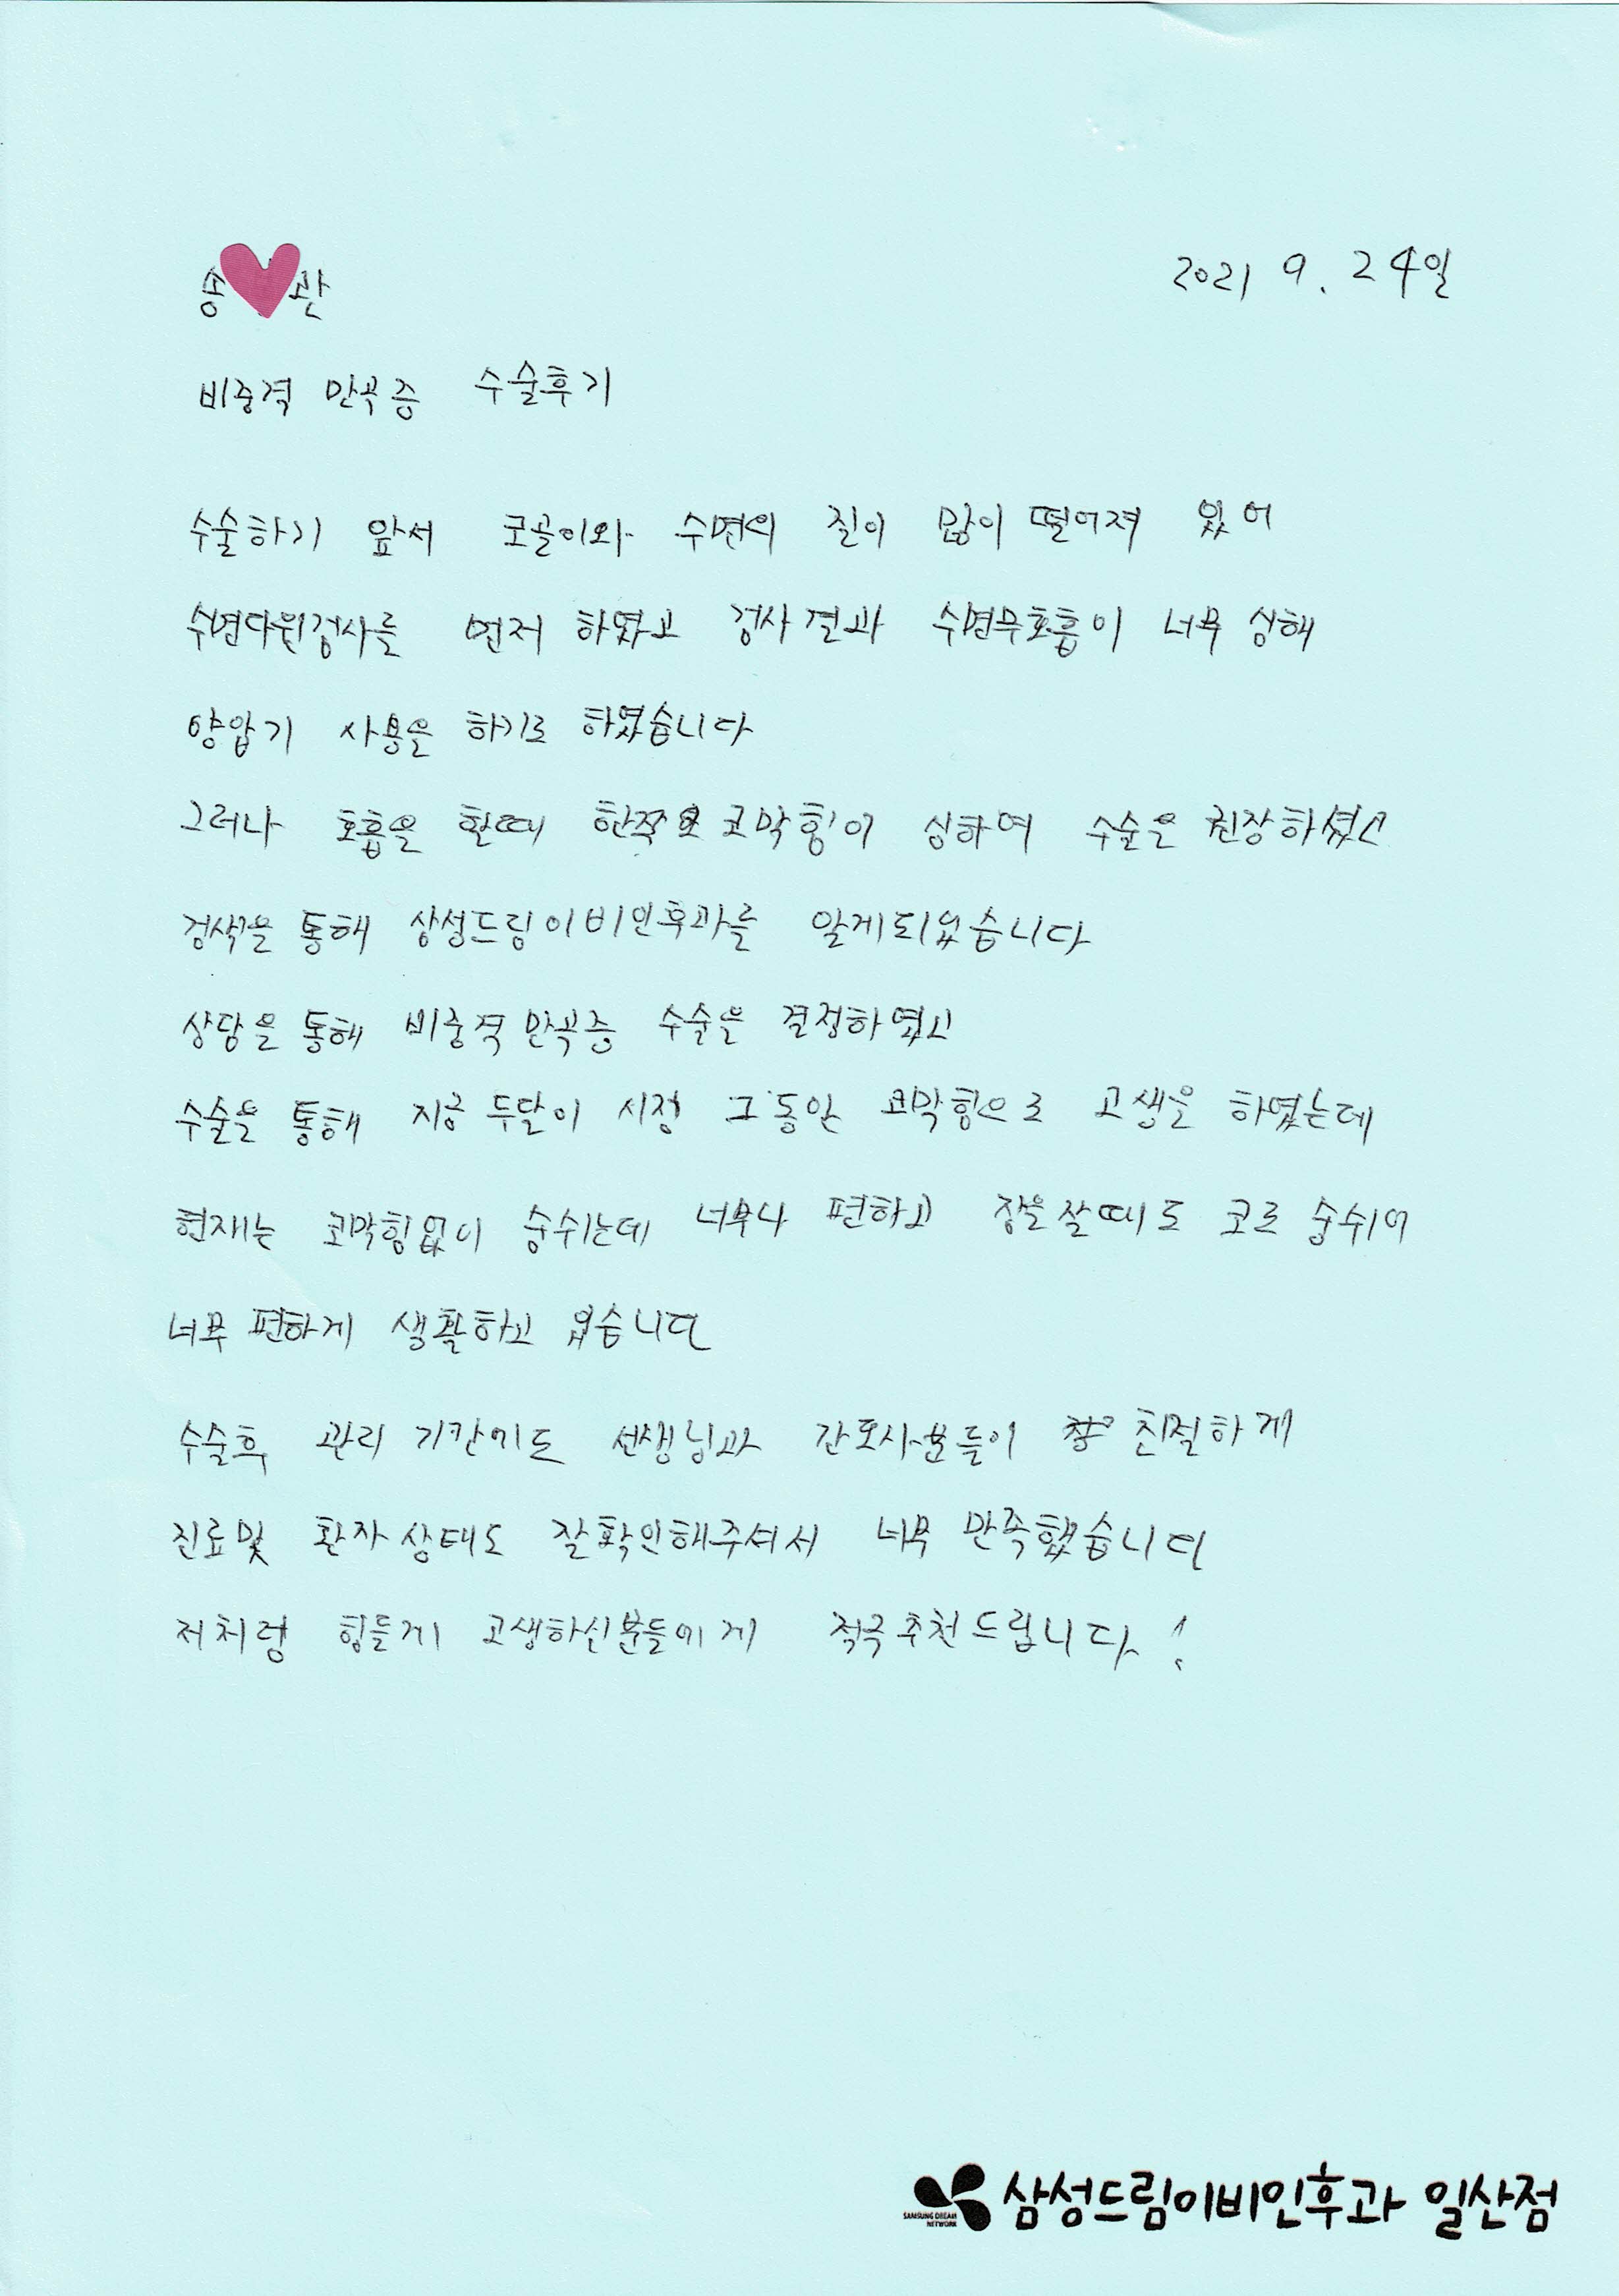 송 관 2021 9. 24일
비중격 만곡증 수술후기
수술하기 앞서 코골이와 수면의 질이 많이 떨어져 있어
수면다원검사를 먼저 하였고 검사결과 수면무호흡이 너무 심해
양압기 사용을 하기로 하였습니다
그러나 호흡을 할때 한쪽으로 코막힘이 심하여 수술은 권장하셨고
검색을 통해 삼성드림이비인후과를 알게되었습니다
상담을 통해 비중격 만곡증 수술을 결정하였고
수술을 통해 지금 두달이 시점 그동안 코막힘으로 고생을 하였는데
현재는 코막힘없이 숨쉬는데 너무나 편하고 잠을 잘때도 코로 숨쉬어
너무 편하게 생활하고 있습니다
수술후 관리 기간에도 선생님과 간호사분들이 친절하게
진료및 환자상태도 잘확인해주셔서 너무 만족했습니다
저처럼 힘들게 고생하신분들에게 적극추천드립니다 !
SAMSUNG DREAM NETWORK 삼성드림이비인후과 일산점